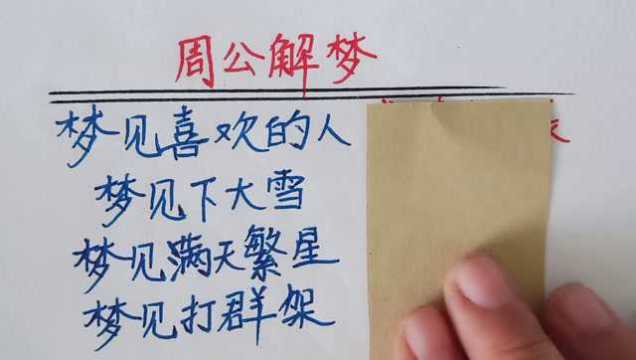 周公解梦
梦见喜欢的人
梦见下大雪
梦见满天繁星
梦见打群架